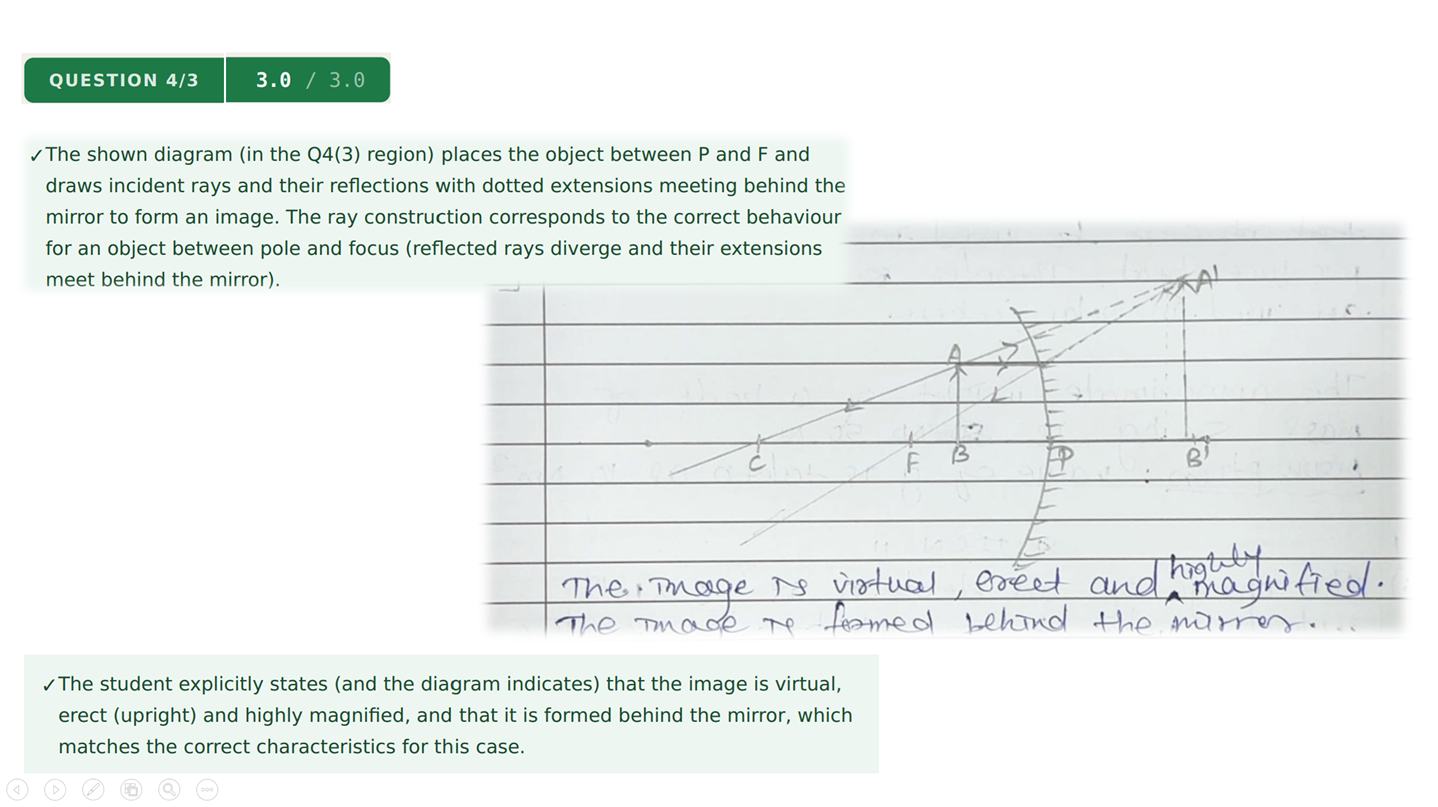 QUESTION 4/3
3.0 / 3.0
✓The shown diagram (in the Q4(3) region) places the object between P and F and
draws incident rays and their reflections with dotted extensions meeting behind the
mirror to form an image. The ray construction corresponds to the correct behaviour
for an object between pole and focus (reflected rays diverge and their extensions
meet behind the mirror).
A'
A
C
F
B
P
B'
The image is virtual, erect and highly magnified.
The image is formed behind the mirror.
✓The student explicitly states (and the diagram indicates) that the image is virtual,
erect (upright) and highly magnified, and that it is formed behind the mirror, which
matches the correct characteristics for this case.